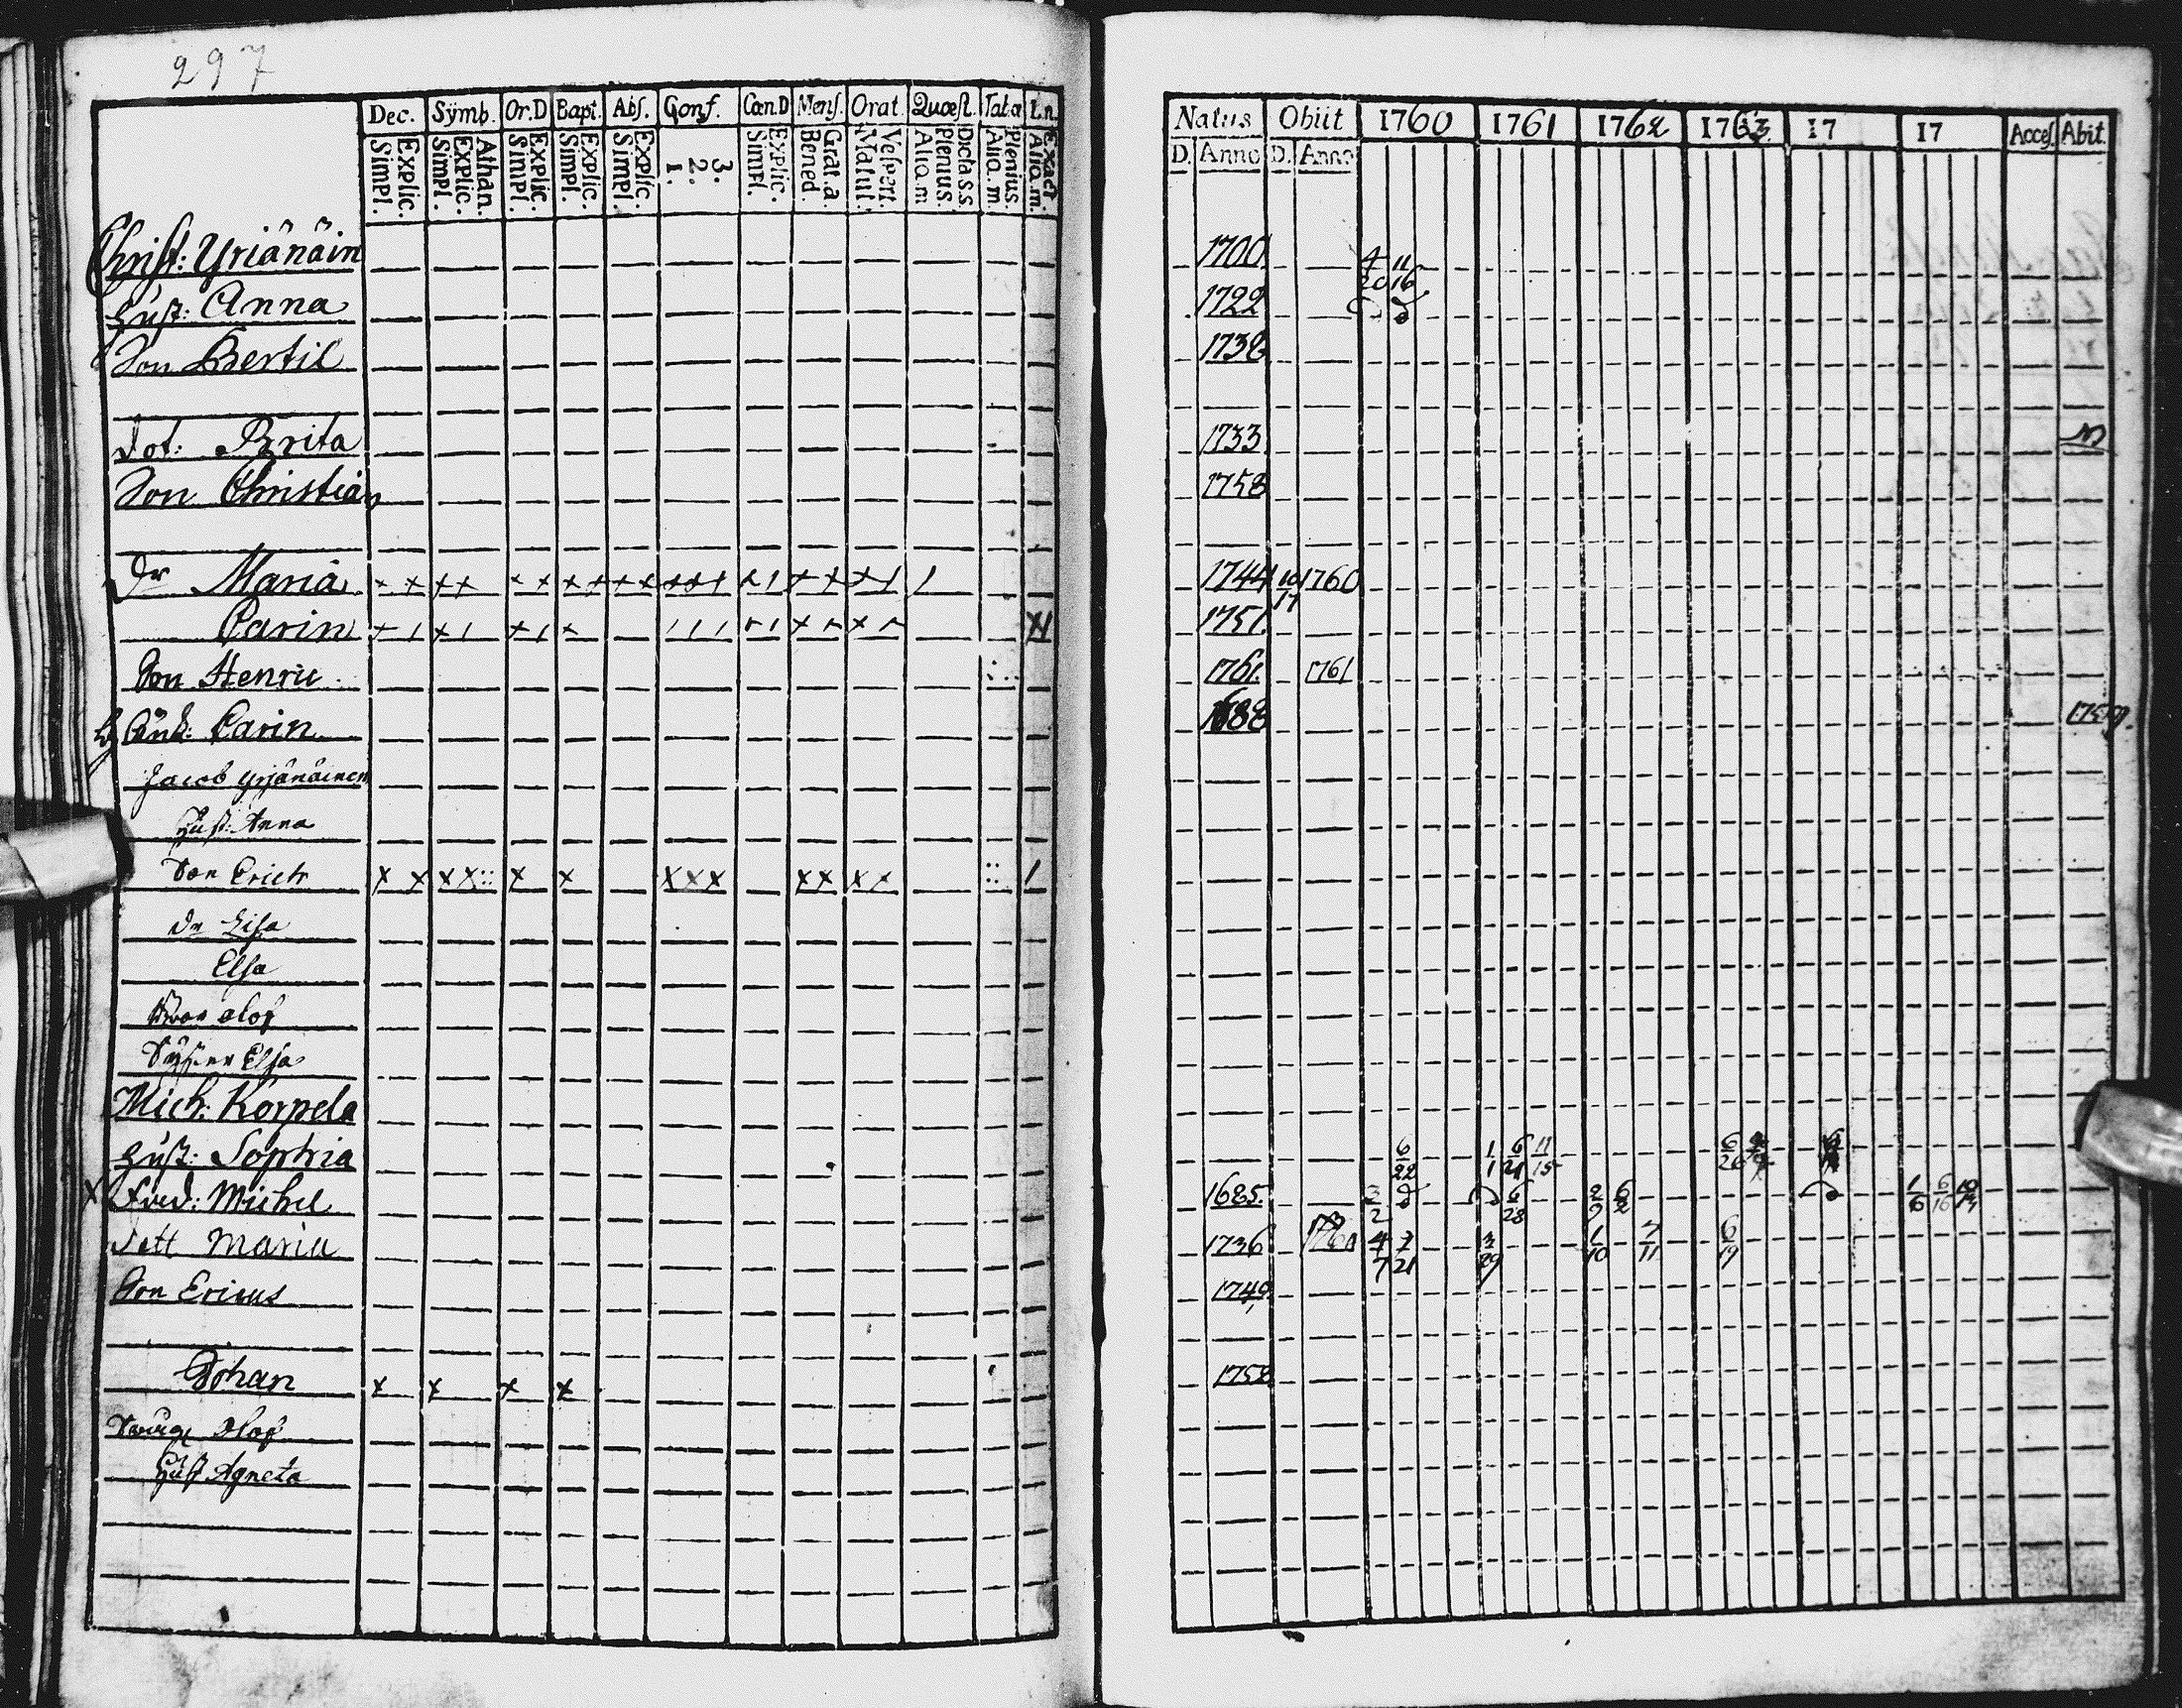 297
Dec. Sÿmb. Or.D Bapt. Abs. Conf. Cœn.D Mens. Orat. Quæst. Tab.æ L.n.
Explic. Simpl. Athan. Explic. Simpl. Explic. Simpl. Explic. Simpl. Explic. Simpl. 3. 2. 1. Explic. Simpl. Grat.a Bened. Vespert. Matut. Dicta s.s. Plenius. Aliq.m Plenius. Aliq.m. Exact. Aliq.m.
Christ: Yriänäin
Hust: Anna
Son Bertil
Dot: Brita
Son Christian
Dr Maria x x x x x x x x x x x x 1 x 1 x x x 1 1
Carin x 1 x 1 x 1 x 1 1 1
Son Henric
Enk: Carin
Jacob Yrjänäinen
Hust: Anna
Son Erich x x x x :: x x x x x x x x x :: 1
Dr Lisa
Elsa
Bror Olof
Syster Elsa
Mich: Korpela
Hust: Sophia
x Fred: Michel
Dott Maria
Son Ericus
Johan x x x x
Olof
Hust Agneta
Natus Obiit 1760 1761 1762 1763 17 17 Acces. Abit.
D. Anno D. Anno
1700 4 11
20 16
1722
1738
1733
1758
1744 10 1760
17
1751
1761 1761
1688 1759.
6 1 6 11 6
22 1 21 15 26
1685 2 6 2 6 1 6 10
2 28 9 2 6 16 14
1736 1760 4 7 3 1 7 6
7 21 29 10 11 19
1749
1758